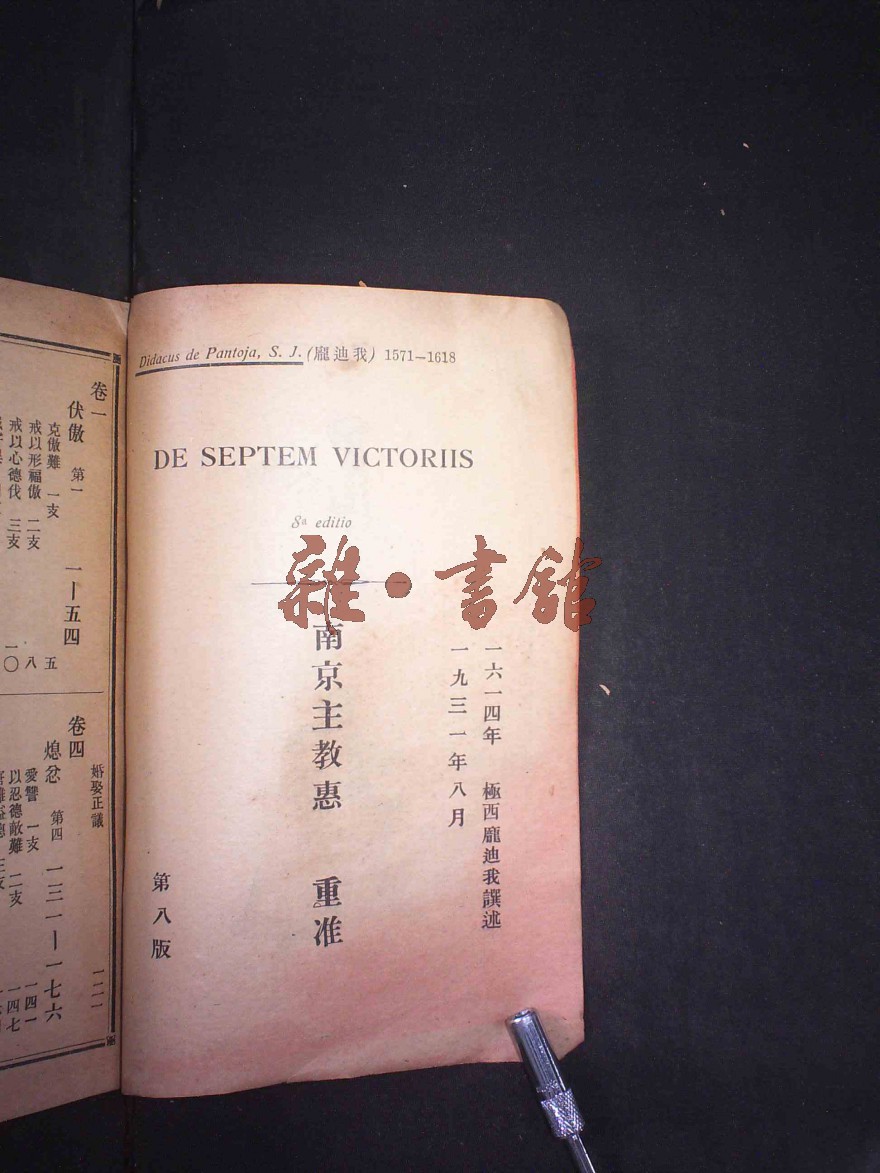 Didacus de Pantoja, S. J. (龐迪我) 1571—1618
DE SEPTEM VICTORIIS
8a editio
雜·書館
一六一四年 極西龐迪我譔述
一九三一年八月
南京主教惠 重准
第八版
卷一
伏傲 第一 一—五四
克傲難 一支 五
戒以形福傲 二支 八
戒以心德伐 三支 一〇
婚娶正議 一二一
卷四
熄忿 第四 一三一—一七六
愛讐 一支 一四一
以忍德敵難 二支 一四七